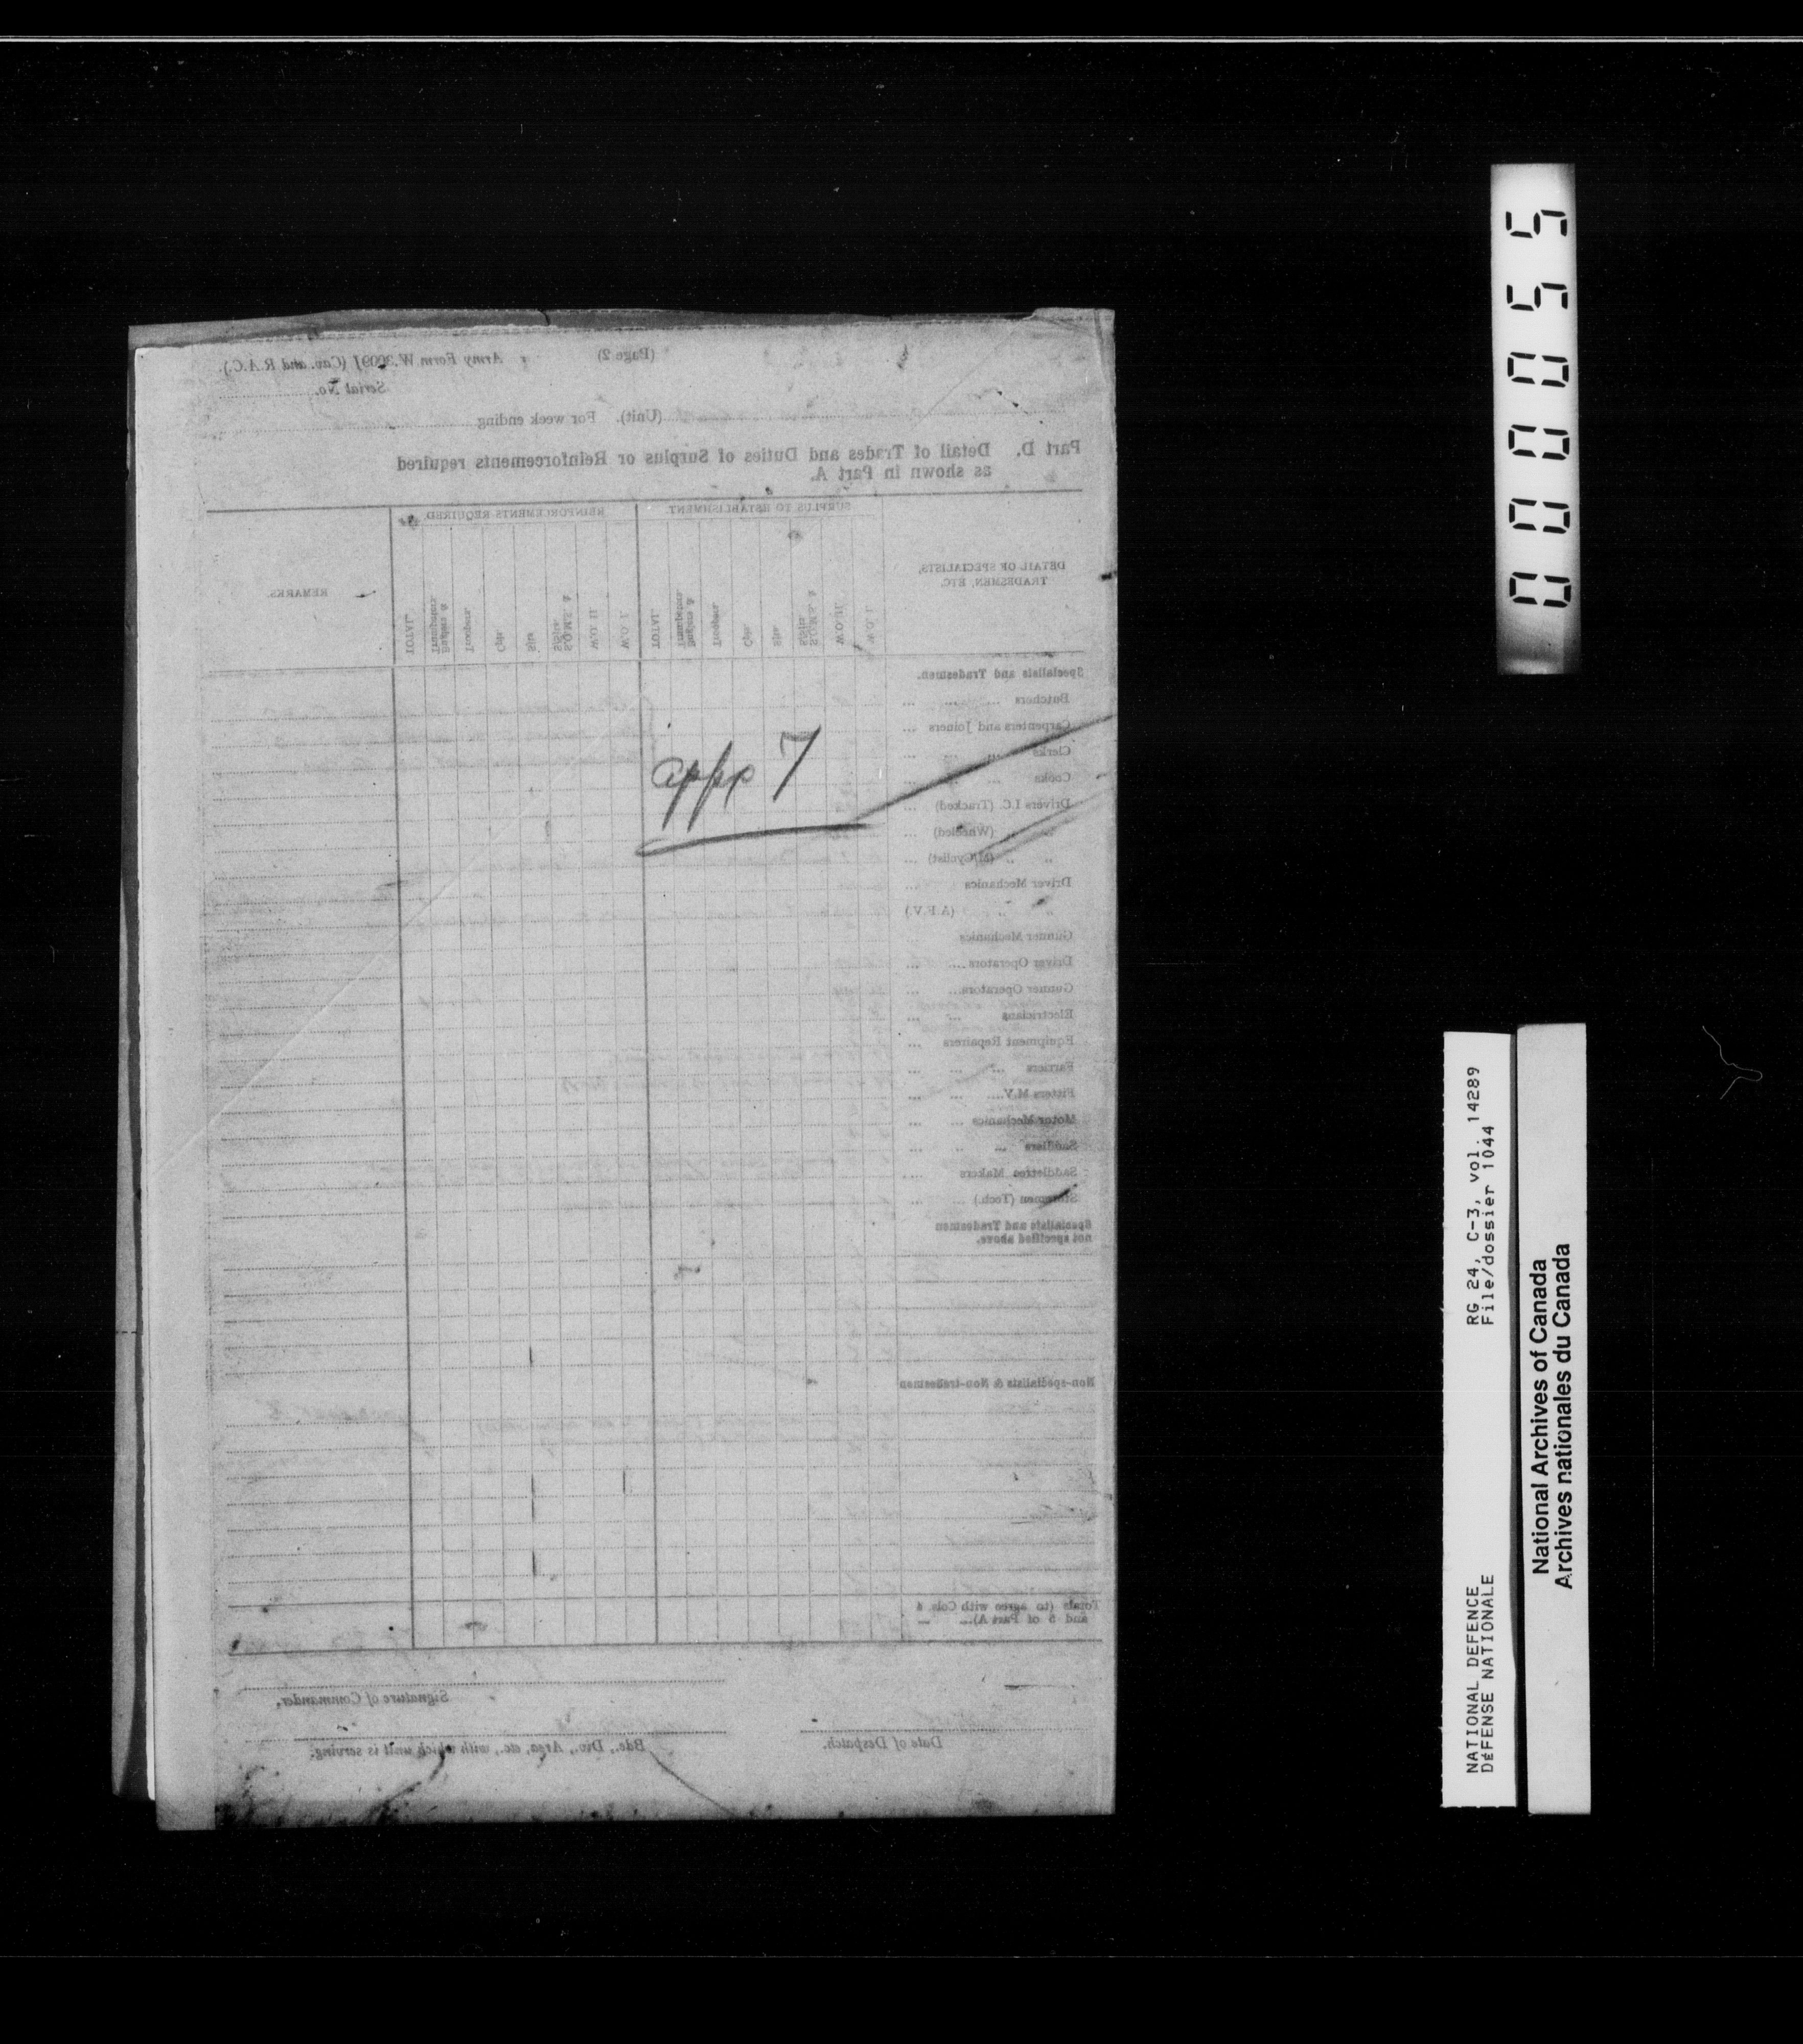 (Page 2)
Army Form W.3009J (Cav. and R.A.C.).
Serial No.
(Unit). For week ending
Part D. Detail of Trades and Duties of Surplus or Reinforcements required
as shown in Part A.
DETAIL OF SPECIALISTS,
TRADESMEN, ETC.
SURPLUS TO ESTABLISHMENT.
REINFORCEMENTS REQUIRED.
REMARKS.
W.O. I.
W.O. II.
S.Q.M.S. &
S/Sjts.
Sjts.
Cpls.
Troopers.
Buglers &
Trumpeters.
TOTAL.
W.O. I.
W.O. II.
S.Q.M.S. &
S/Sjts.
Sjts.
Cpls.
Troopers.
Buglers &
Trumpeters.
TOTAL.
Specialists and Tradesmen.
Butchers ... ... ...
Carpenters and Joiners ...
Clerks ... ...
Cooks ... ... ...
Drivers I.C. (Tracked) ...
„ „ (Wheeled) ...
„ „ (M/Cyclist) ...
Driver Mechanics ...
„ „ (A.F.V.)
Gunner Mechanics
Driver Operators.... ...
Gunner Operators... ...
Electricians ... ...
Equipment Repairers ...
Farriers ... ... ...
Fitters M.V.... ... ...
Motor Mechanics ... ...
Saddlers ... ... ...
Saddletree Makers ...
Storemen (Tech.) ... ...
Specialists and Tradesmen
not specified above.
Non-specialists & Non-tradesmen
Totals (to agree with Cols. 4
and 5 of Part A)... ...
Signature of Commander.
Bde., Div., Area, etc., with which unit is serving.
Date of Despatch.
appx 7
000055
RG 24, C-3, vol. 14289
File/dossier 1044
NATIONAL DEFENCE
DÉFENSE NATIONALE
National Archives of Canada
Archives nationales du Canada